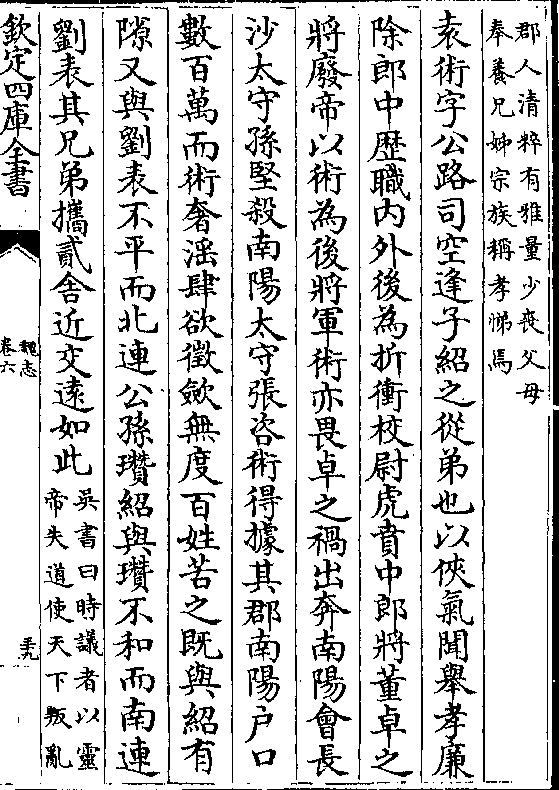 郡人清粹有雅量少喪父母
奉養兄姊宗族稱孝悌焉
袁術字公路司空逢子紹之從弟也以俠氣聞舉孝廉
除郎中歴職内外後為折衝校尉虎賁中郎將董卓之
將廢帝以術為後將軍術亦畏卓之禍出奔南陽會長
沙太守孫堅殺南陽太守張咨術得據其郡南陽户口
數百萬而術奢滛肆欲徵斂無度百姓苦之既與紹有
隙又與劉表不平而北連公孫瓚紹與瓚不和而南連
劉表其兄弟攜貳舍近交逺如此
吳書曰時議者以靈
帝失道使天下叛亂
欽定四庫全書
魏志
卷六
至九